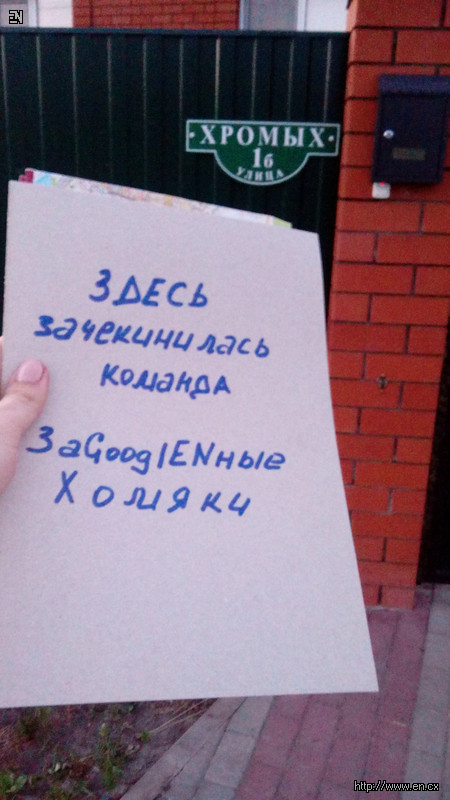 EN
· ХРОМЫХ ·
1б
УЛИЦА
ЗДЕСЬ
зачекинилась
команда
ЗаGooglENные
Хомяки
http://www.en.cx